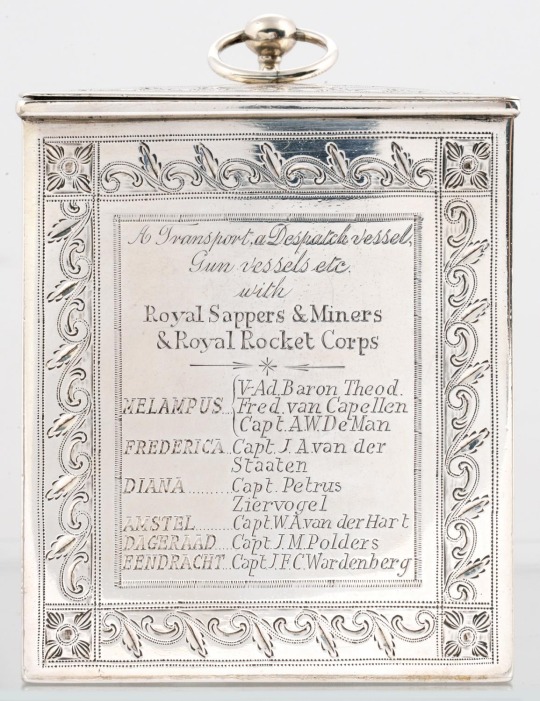 A Transport, a Despatch vessel,
Gun vessels etc.
with
Royal Sappers & Miners
& Royal Rocket Corps
MELAMPUS... {V-Ad. Baron Theod.
Fred. van Capellen
Capt. A.W. De Man
FREDERICA.. Capt. J. A van der
Staaten
DIANA ......... Capt. Petrus
Ziervogel
AMSTEL...... Capt. W. A van der Hart
DAGERAAD... Capt. J. M. Polders
EENDRACHT. Capt. J. F. C. Wardenberg